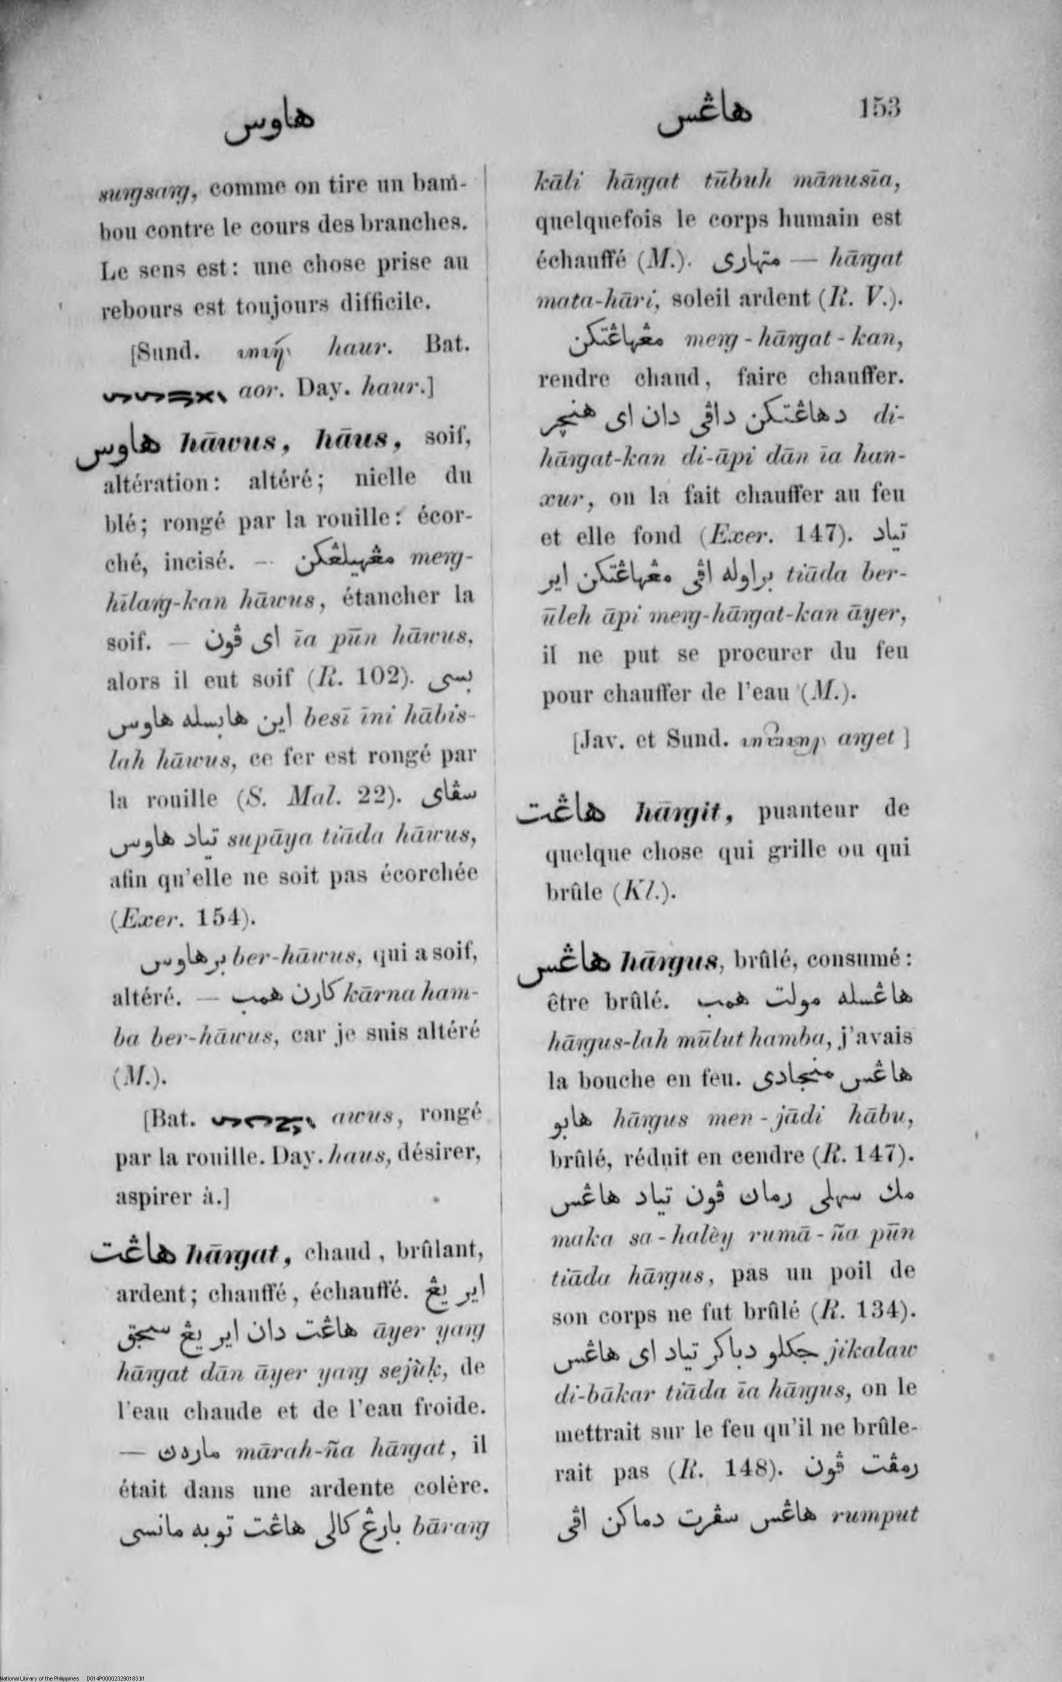 هاوس
هاڠس 153
surgsarg, comme on tire un bam-
bou contre le cours des branches.
Le sens est: une chose prise au
rebours est toujours difficile.
[Sund. haur. Bat.
aor. Day. haur.]
هاوس hāwus, hāus, soif,
altération: altéré; nielle du
blé; rongé par la rouille: écor-
ché, incisé. — مڠهيلڠكن merg-
hīlarg-kan hāwus, étancher la
soif. — اى ڤون īa pūn hāwus,
alors il eut soif (R. 102). بسى
اين هابسله هاوس besī īni hābis-
lah hāwus, ce fer est rongé par
la rouille (S. Mal. 22). سڤاى
تياد هاوس supāya tiāda hāwus,
afin qu'elle ne soit pas écorchée
(Exer. 154).
برهاوس ber-hāwus, qui a soif,
altéré. — كارن همب kārna ham-
ba ber-hāwus, car je suis altéré
(M.).
[Bat. awus, rongé
par la rouille. Day. haus, désirer,
aspirer à.]
هاڠت hārgat, chaud, brûlant,
ardent; chauffé, échauffé. اير يڠ
هاڠت دان اير يڠ سجق āyer yarg
hārgat dān āyer yarg sejùk, de
l'eau chaude et de l'eau froide.
— mārah-ña hārgat, il
était dans une ardente colère.
بارڠ كالى هاڠت توبه مانسى bārarg
kāli hārgat tūbuh mānusīa,
quelquefois le corps humain est
échauffé (M.). متهارى — hārgat
mata-hāri, soleil ardent (R. V.).
مڠهاڠتكن merg-hārgat-kan,
rendre chaud, faire chauffer.
دهاڠتكن داڤى دان اى هنچر di-
hārgat-kan di-āpi dān īa han-
xur, on la fait chauffer au feu
et elle fond (Exer. 147). تياد
براوله اڤى مڠهاڠتكن اير tiāda ber-
ūleh āpi merg-hārgat-kan āyer,
il ne put se procurer du feu
pour chauffer de l'eau (M.).
[Jav. et Sund. arget ]
هاڠت hārgit, puanteur de
quelque chose qui grille ou qui
brûle (Kl.).
هاڠس hārgus, brûlé, consumé:
être brûlé. هاڠسله مولت همب
hārgus-lah mūlut hamba, j'avais
la bouche en feu. هاڠس منجادى
هابو hārgus men-jādi hābu,
brûlé, réduit en cendre (R. 147).
مك سهلى رمان ڤون تياد هاڠس
maka sa-halèy rumā-ña pūn
tiāda hārgus, pas un poil de
son corps ne fut brûlé (R. 134).
جكلو دباكر تياد اى هاڠس jikalaw
di-bākar tiāda īa hārgus, on le
mettrait sur le feu qu'il ne brûle-
rait pas (R. 148). رمڤت ڤون
هاڠس سڤرت دماكن اڤى rumput
National Library of the Philippines